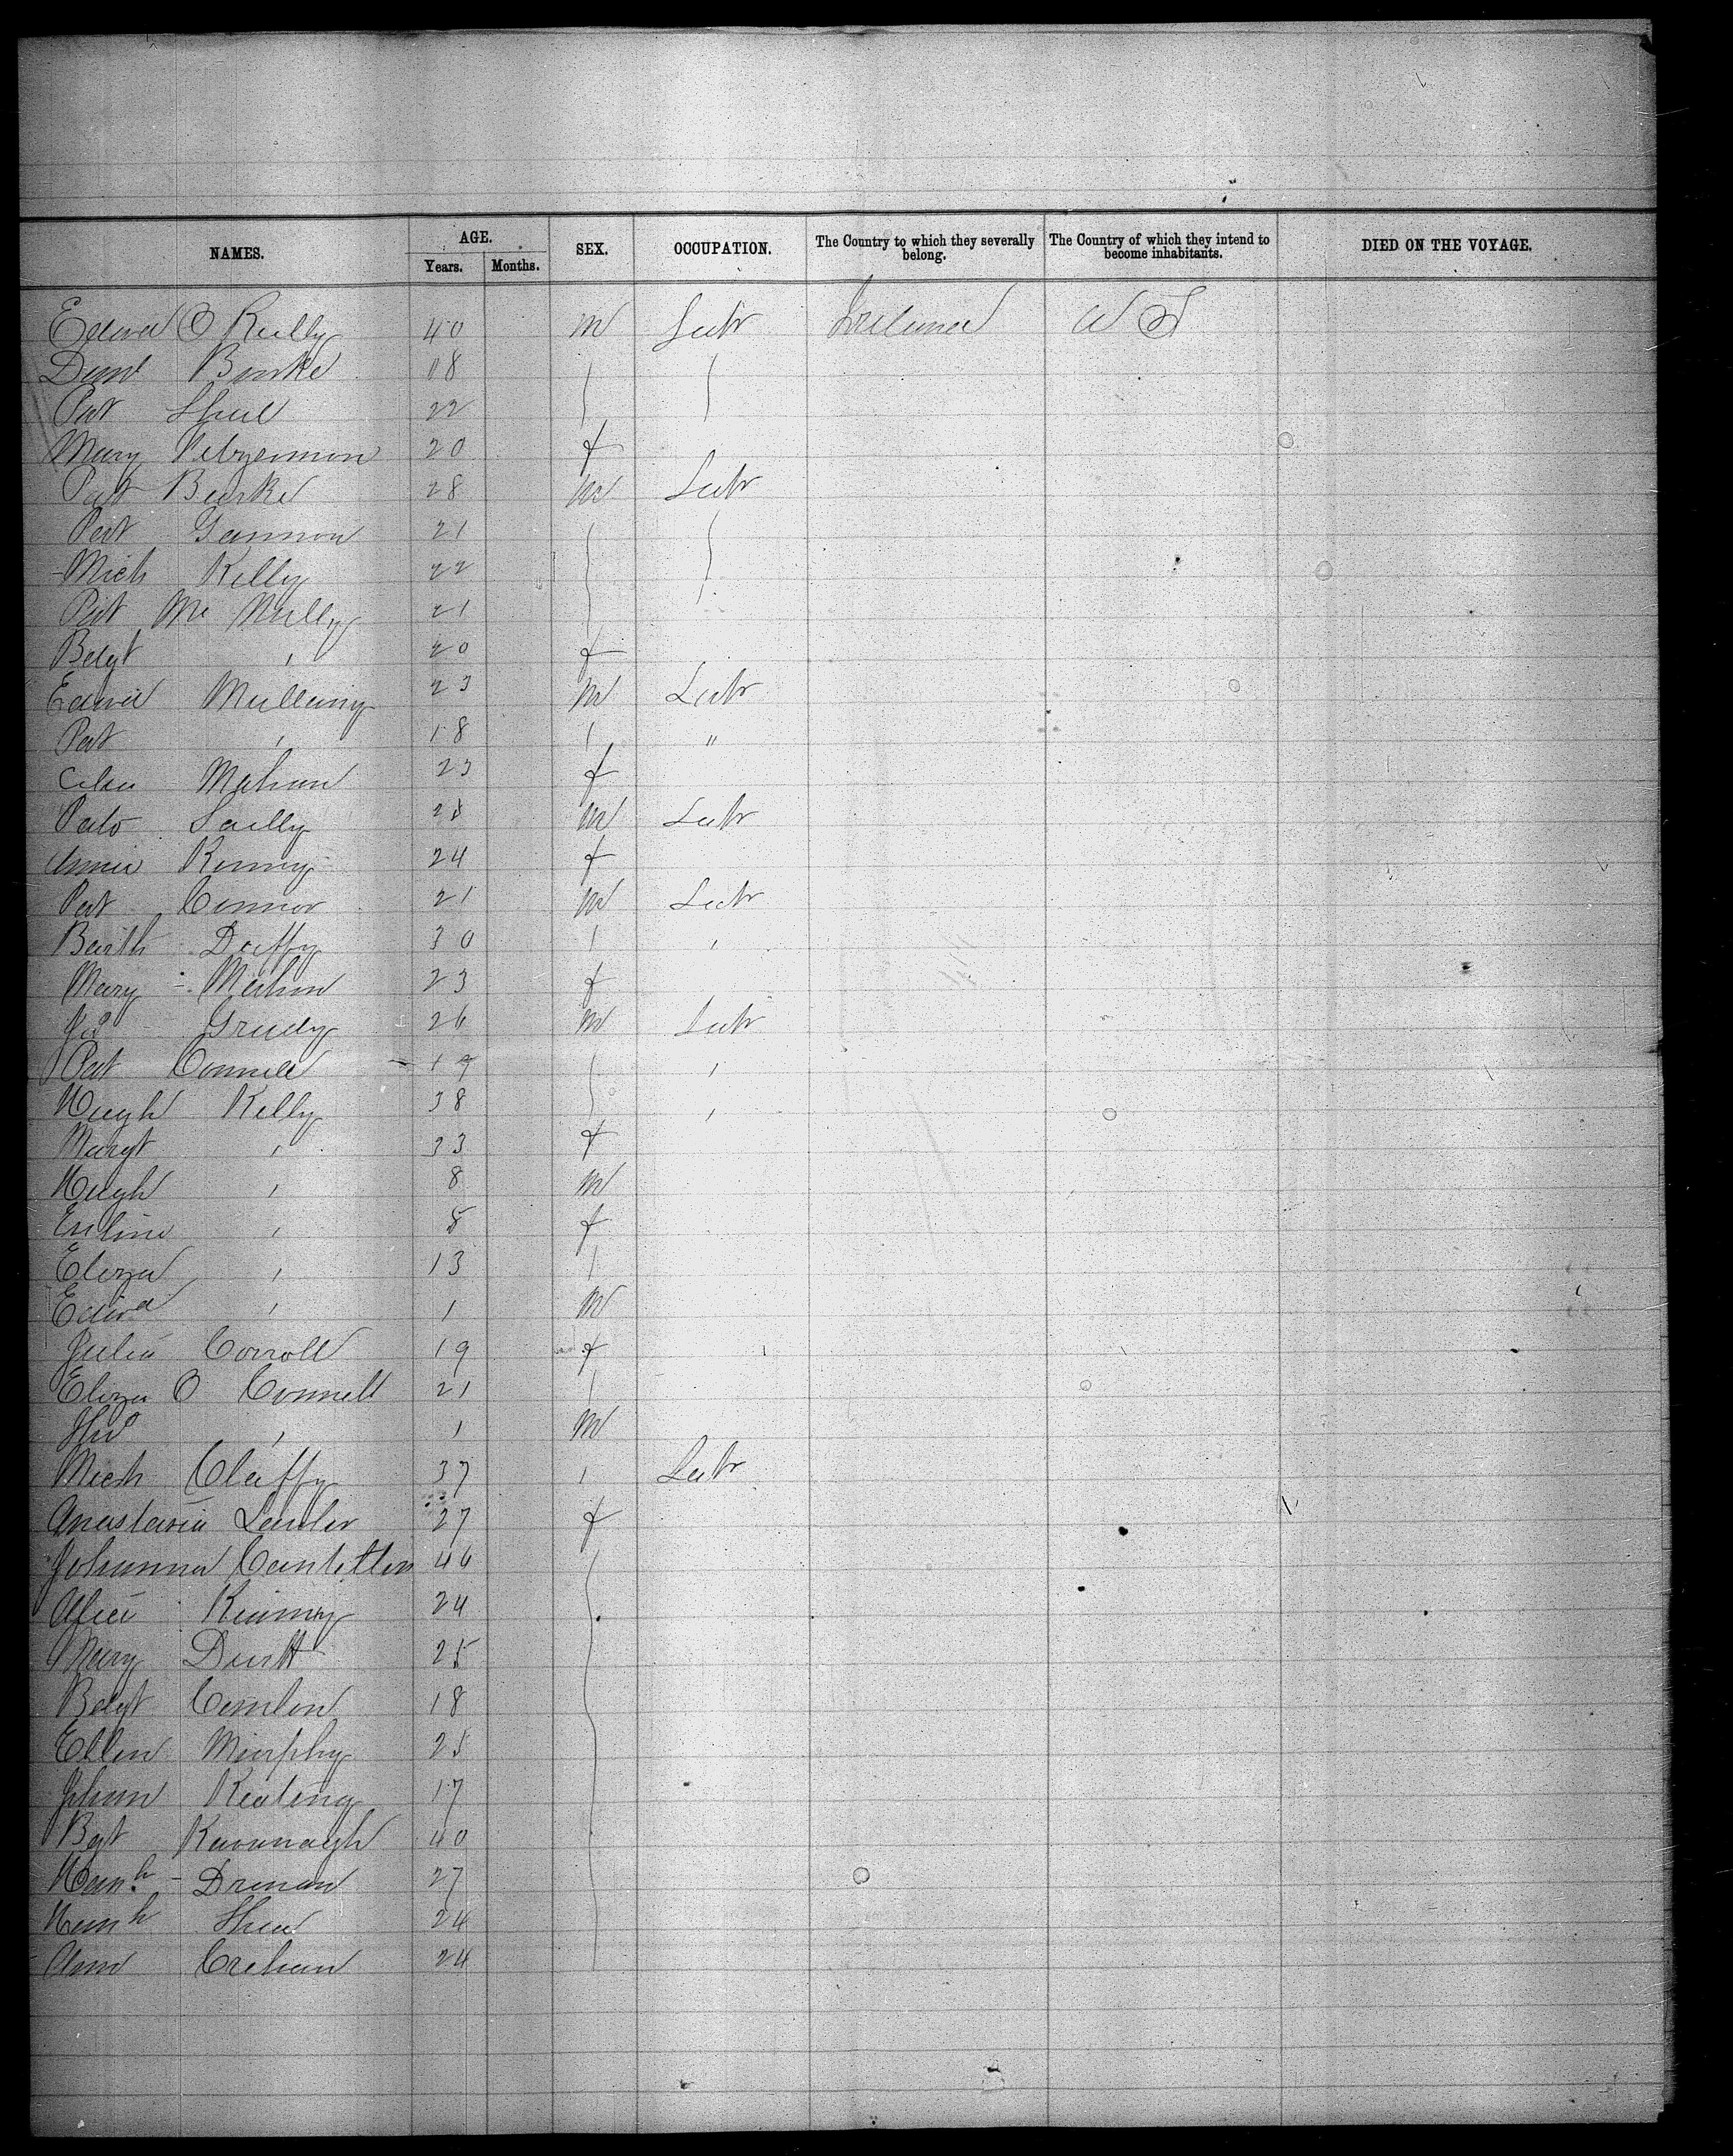 NAMES. AGE. SEX. OCCUPATION. The Country to which they severally belong. The Country of which they intend to become inhabitants. DIED ON THE VOYAGE.
Years. Months.
Edwd O Reilly 40 m Labr Ireland U S
Danl Burke 18
Pat Shiel 22
Mary 20 f
Pat Burke 28 m Labr
Pat Gannon 21
Mich Kelly 22
Pat Mc Nully 21
Bdgt " 20 f
Edwd Mullany 23 m Labr
Pat " 18 " "
Mahon 23 f
Patk 25 m Labr
Annie Kenny 24 f
Pat Connor 21 m Labr
Barth Duffy 30 " "
Mary Mahon 23 f
Jno Grady 26 m Labr
Pat Connell 19 "
Hugh Kelly 38 "
Margt " 33 f
Hugh " 8 m
" 8 f
Eliza " 13 "
Edwd " 1 m
Julia Corroll 19 f
Eliza O Connell 21 "
Thos " 1 m
Mich Claffy 37 " Labr
Anastasia Lawler 27 f
Johanna Cantillon 46
Alice Kenny 24
Mary 25
Bdgt Conlon 18
Ellen Murphy 25
Johan Keating 17
Bgt Kavanagh 40
Hanh Drenan 27
Hanh Shea 24
Ann Crehan 24